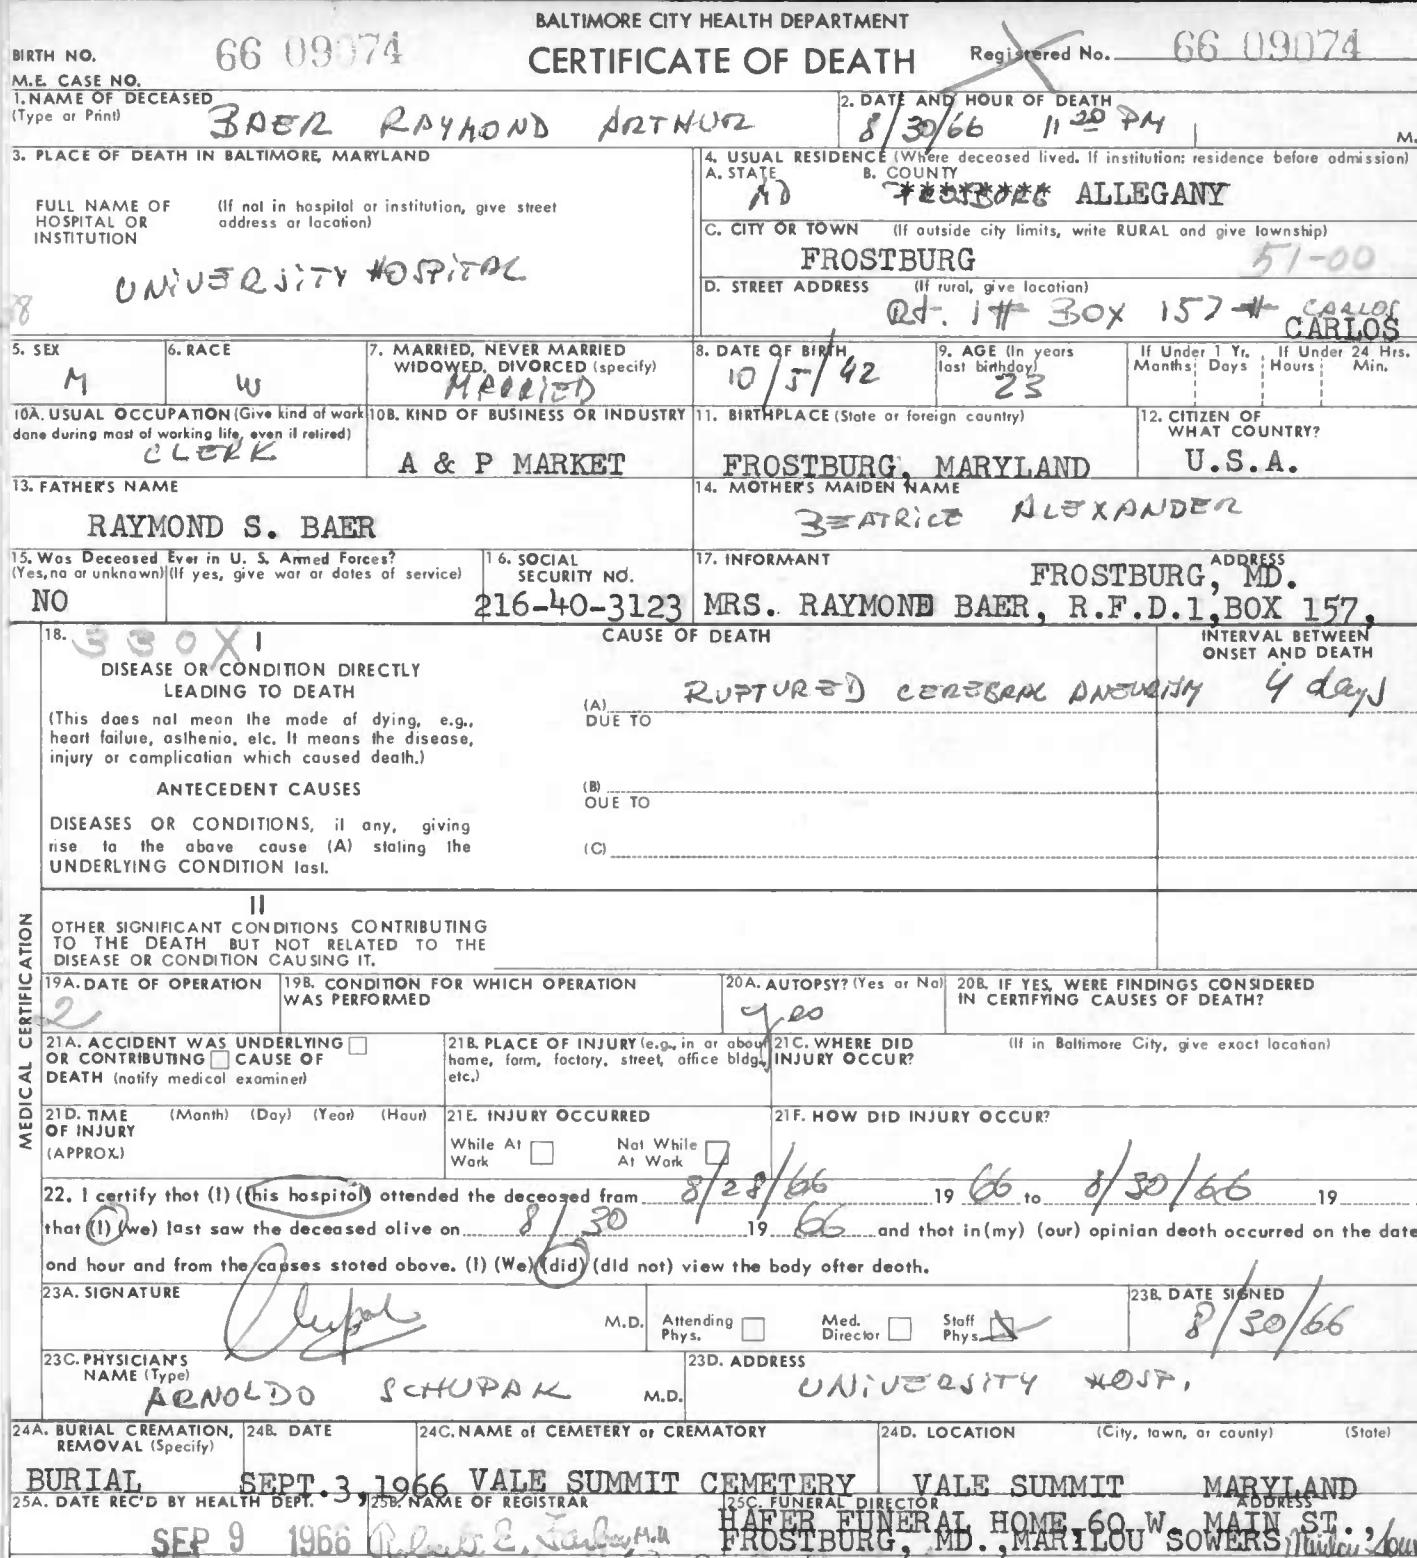 BALTIMORE CITY HEALTH DEPARTMENT
CERTIFICATE OF DEATH
BIRTH NO. 66 09074
Registered No. 66 09074
M.E. CASE NO.
1. NAME OF DECEASED
(Type or Print) BAER RAYMOND ARTHUR
2. DATE AND HOUR OF DEATH
8/30/66 11 20 PM M.
3. PLACE OF DEATH IN BALTIMORE, MARYLAND
FULL NAME OF HOSPITAL OR INSTITUTION
(If not in hospital or institution, give street address or location)
UNIVERSITY HOSPITAL
4. USUAL RESIDENCE (Where deceased lived. If institution: residence before admission)
A. STATE MD
B. COUNTY ALLEGANY
C. CITY OR TOWN (If outside city limits, write RURAL and give township)
FROSTBURG 51-00
D. STREET ADDRESS (If rural, give location)
Rd. 1# BOX 157 # CARLOS
CARLOS
5. SEX M
6. RACE W
7. MARRIED, NEVER MARRIED WIDOWED, DIVORCED (specify)
MARRIED
8. DATE OF BIRTH
10/5/42
9. AGE (In years last birthday)
23
If Under 1 Yr. Months Days
If Under 24 Hrs. Hours Min.
10A. USUAL OCCUPATION (Give kind of work done during most of working life, even if retired)
CLERK
10B. KIND OF BUSINESS OR INDUSTRY
A & P MARKET
11. BIRTHPLACE (State or foreign country)
FROSTBURG, MARYLAND
12. CITIZEN OF WHAT COUNTRY?
U.S.A.
13. FATHER'S NAME
RAYMOND S. BAER
14. MOTHER'S MAIDEN NAME
BEATRICE ALEXANDER
15. Was Deceased Ever in U. S. Armed Forces?
(Yes, no or unknown) (If yes, give war or dates of service)
NO
16. SOCIAL SECURITY NO.
216-40-3123
17. INFORMANT ADDRESS
FROSTBURG, MD.
MRS. RAYMOND BAER, R.F.D.1, BOX 157,
MEDICAL CERTIFICATION
18. 330X I
CAUSE OF DEATH
INTERVAL BETWEEN ONSET AND DEATH
DISEASE OR CONDITION DIRECTLY LEADING TO DEATH
(This does not mean the mode of dying, e.g., heart failure, asthenia, etc. It means the disease, injury or complication which caused death.)
(A) RUPTURED CEREBRAL ANEURISM 4 days
DUE TO
ANTECEDENT CAUSES
(B)
DUE TO
DISEASES OR CONDITIONS, if any, giving rise to the above cause (A) stating the UNDERLYING CONDITION last.
(C)
II
OTHER SIGNIFICANT CONDITIONS CONTRIBUTING TO THE DEATH BUT NOT RELATED TO THE DISEASE OR CONDITION CAUSING IT.
19A. DATE OF OPERATION
2
19B. CONDITION FOR WHICH OPERATION WAS PERFORMED
20A. AUTOPSY? (Yes or No)
yes
20B. IF YES, WERE FINDINGS CONSIDERED IN CERTIFYING CAUSES OF DEATH?
21A. ACCIDENT WAS UNDERLYING OR CONTRIBUTING CAUSE OF DEATH (notify medical examiner)
21B. PLACE OF INJURY (e.g., in or about home, farm, factory, street, office bldg., etc.)
21C. WHERE DID INJURY OCCUR?
(If in Baltimore City, give exact location)
21D. TIME OF INJURY (APPROX.) (Month) (Day) (Year) (Hour)
21E. INJURY OCCURRED
While At Work Not While At Work
21F. HOW DID INJURY OCCUR?
22. I certify that (I) (this hospital) attended the deceased from 8/28/66 19 66 to 8/30/66 19
that (I) (we) last saw the deceased alive on 8/30 19 66 and that in (my) (our) opinian death occurred on the date
and hour and from the causes stated above. (I) (We) (did) (did not) view the body after death.
23A. SIGNATURE
M.D.
Attending Phys. Med. Director Staff Phys.
23B. DATE SIGNED
8/30/66
23C. PHYSICIAN'S NAME (Type)
ARNOLDO SCHUPAK M.D.
23D. ADDRESS
UNIVERSITY HOSP.
24A. BURIAL CREMATION, REMOVAL (Specify)
BURIAL
24B. DATE
SEPT.3,1966
24C. NAME of CEMETERY or CREMATORY
VALE SUMMIT CEMETERY
24D. LOCATION (City, town, or county) (State)
VALE SUMMIT MARYLAND
25A. DATE REC'D BY HEALTH DEPT.
SEP 9 1966
25B. NAME OF REGISTRAR
Robert E. Farber, M.D.
25C. FUNERAL DIRECTOR ADDRESS
HAFER FUNERAL HOME, 60 W. MAIN ST.,
FROSTBURG, MD., MARILOU SOWERS